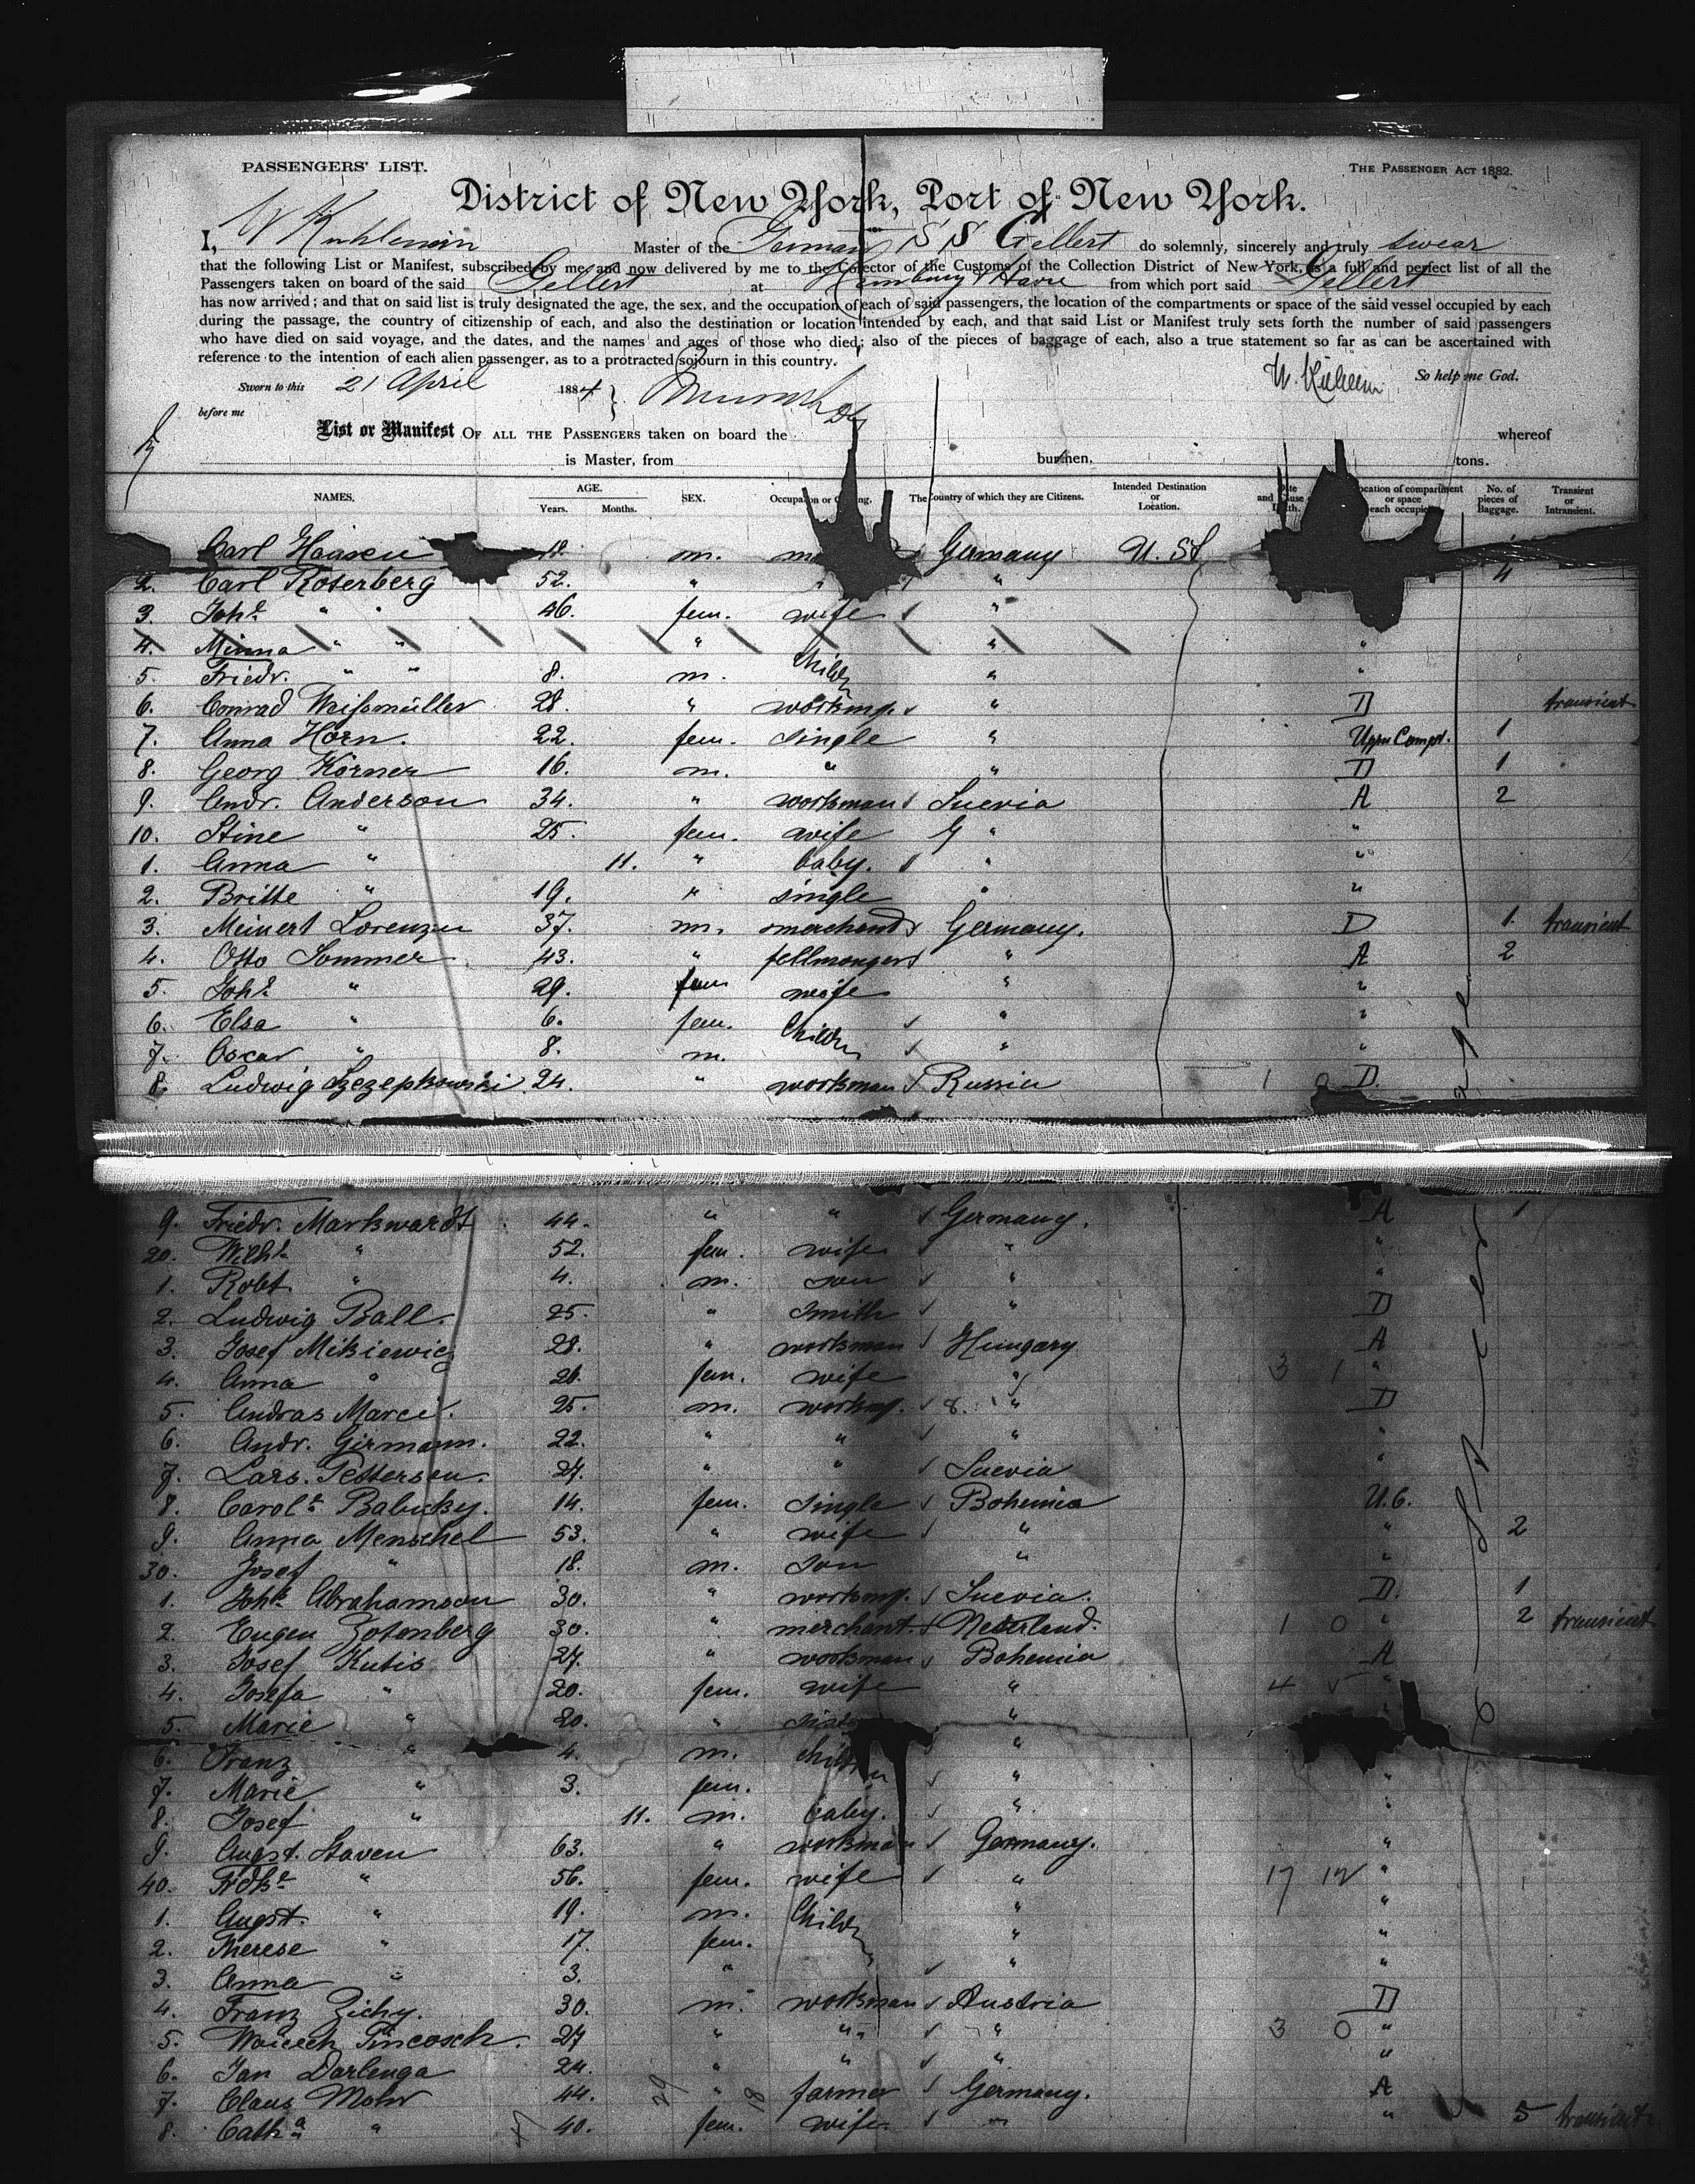 PASSENGERS' LIST.
THE PASSENGER ACT 1882.
District of New York, Port of New York.
I, W Kuhlewein Master of the German SS Gellert do solemnly, sincerely and truly swear
that the following List or Manifest, subscribed by me, and now delivered by me to the Collector of the Customs of the Collection District of New York, is a full and perfect list of all the
Passengers taken on board of the said Gellert at Hamburg & Havre from which port said Gellert
has now arrived; and that on said list is truly designated the age, the sex, and the occupation of each of said passengers, the location of the compartments or space of the said vessel occupied by each
during the passage, the country of citizenship of each, and also the destination or location intended by each, and that said List or Manifest truly sets forth the number of said passengers
who have died on said voyage, and the dates, and the names and ages of those who died; also of the pieces of baggage of each, also a true statement so far as can be ascertained with
reference to the intention of each alien passenger, as to a protracted sojourn in this country.
So help me God.
Sworn to this 21 April 1884
before me
List or Manifest OF ALL THE PASSENGERS taken on board the whereof
is Master, from burthen, tons.
NAMES. AGE. Years. Months. SEX. Occupation or Calling. The Country of which they are Citizens. Intended Destination or Location. Date and Cause of Death. Location of compartment or space each occupied No. of pieces of Baggage. Transient or Intransient.
Carl Haasen 18. m. Germany U. St.
2. Carl Roserberg 52. " " " 4
3. Joh.e " " 46. fem. wife "
4. Minna " " " " "
5. Friedr. " " 8. m. Childr " "
6. Conrad Weissmüller 28. " workmn. " D transient
7. Anna Horn. 22. fem. single " Upper Compt. 1
8. Georg Körner 16. m. " " D 1
9. Andr. Anderson 34. " workman Suevia A 2
10. Stine " 25. fem. wife " "
1. Anna " 11. " baby. " "
2. Britte " 19. " single " "
3. Meinert Lorenzen 37. m. merchant Germany. D 1. transient
4. Otto Sommer 43. " fellmonger " A 2
5. Joh.e " 29. fem wife " "
6. Elsa " 6. fem. Childr " "
7. Oscar " 8. m. " "
8. Ludwig Szezepkowski 24. " workman Russia 1 0 D.
9. Friedr. Markwardt 44. " " Germany. A 1
20. Wilh.e " 52. fem. wife " "
1. Robt. " 4. m. son " "
2. Ludwig Ball. 25. " smith " D
3. Josef Mikiewicz 28. " workman Hungary A
4. Anna " 26. fem. wife " 3 1 "
5. Andras Marci. 25. m. workmn. " D
6. Andr. Girmann. 22. " " " "
7. Lars. Petterson. 27. " " Suevia "
8. Carol.e Babucky. 14. fem. single Bohemia U.C.
9. Anna Menschel 53. " wife " " 2
30. Josef " 18. m. son " "
1. Joh.s Abrahamson 30. " workmn. Suevia. D. 1
2. Eugen Zotenberg 30. " merchant. Nederland. 1 0 " 2 transient
3. Josef Kutis 27. " workman Bohemia A
4. Josefa " 20. fem. wife " 4 "
5. Marie " 20. " sister " "
6. Franz " 4. m. childr "
7. Marie " 3. fem. " "
8. Josef " 11. m. baby. " "
9. Augst. Staven 63. " workman Germany. "
40. Frdk.e " 56. fem. wife " 17 12 "
1. Augst. " 19. m. Childr " "
2. Therese " 17. fem. " "
3. Anna " 3. " " "
4. Franz Zichy. 30. m. workman Austria D
5. Woicech Pincosch. 27 " " " 3 0 "
6. Jan Darlenga 24. " " " "
7. Claus Mohr 44. " farmer Germany. A
8. Cath.a " 40. fem. wife. " " 5 transient